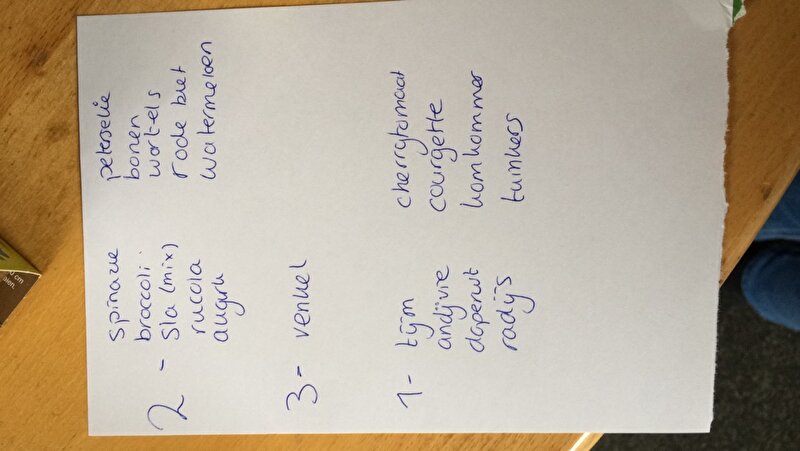 spinazie peterselie
broccoli bonen
2 - sla (mix) wortels
rucola rode biet
augurk watermeloen
3 - venkel
1 - tijm cherrytomaat
andijvie courgette
doperwt komkommer
radijs tuinkers